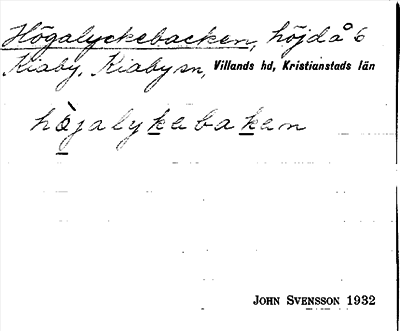 Högalyckebacken, höjd å 6
Kiaby, Kiaby sn, Villands hd, Kristianstads län
hòjalykebaken
JOHN SVENSSON 1932